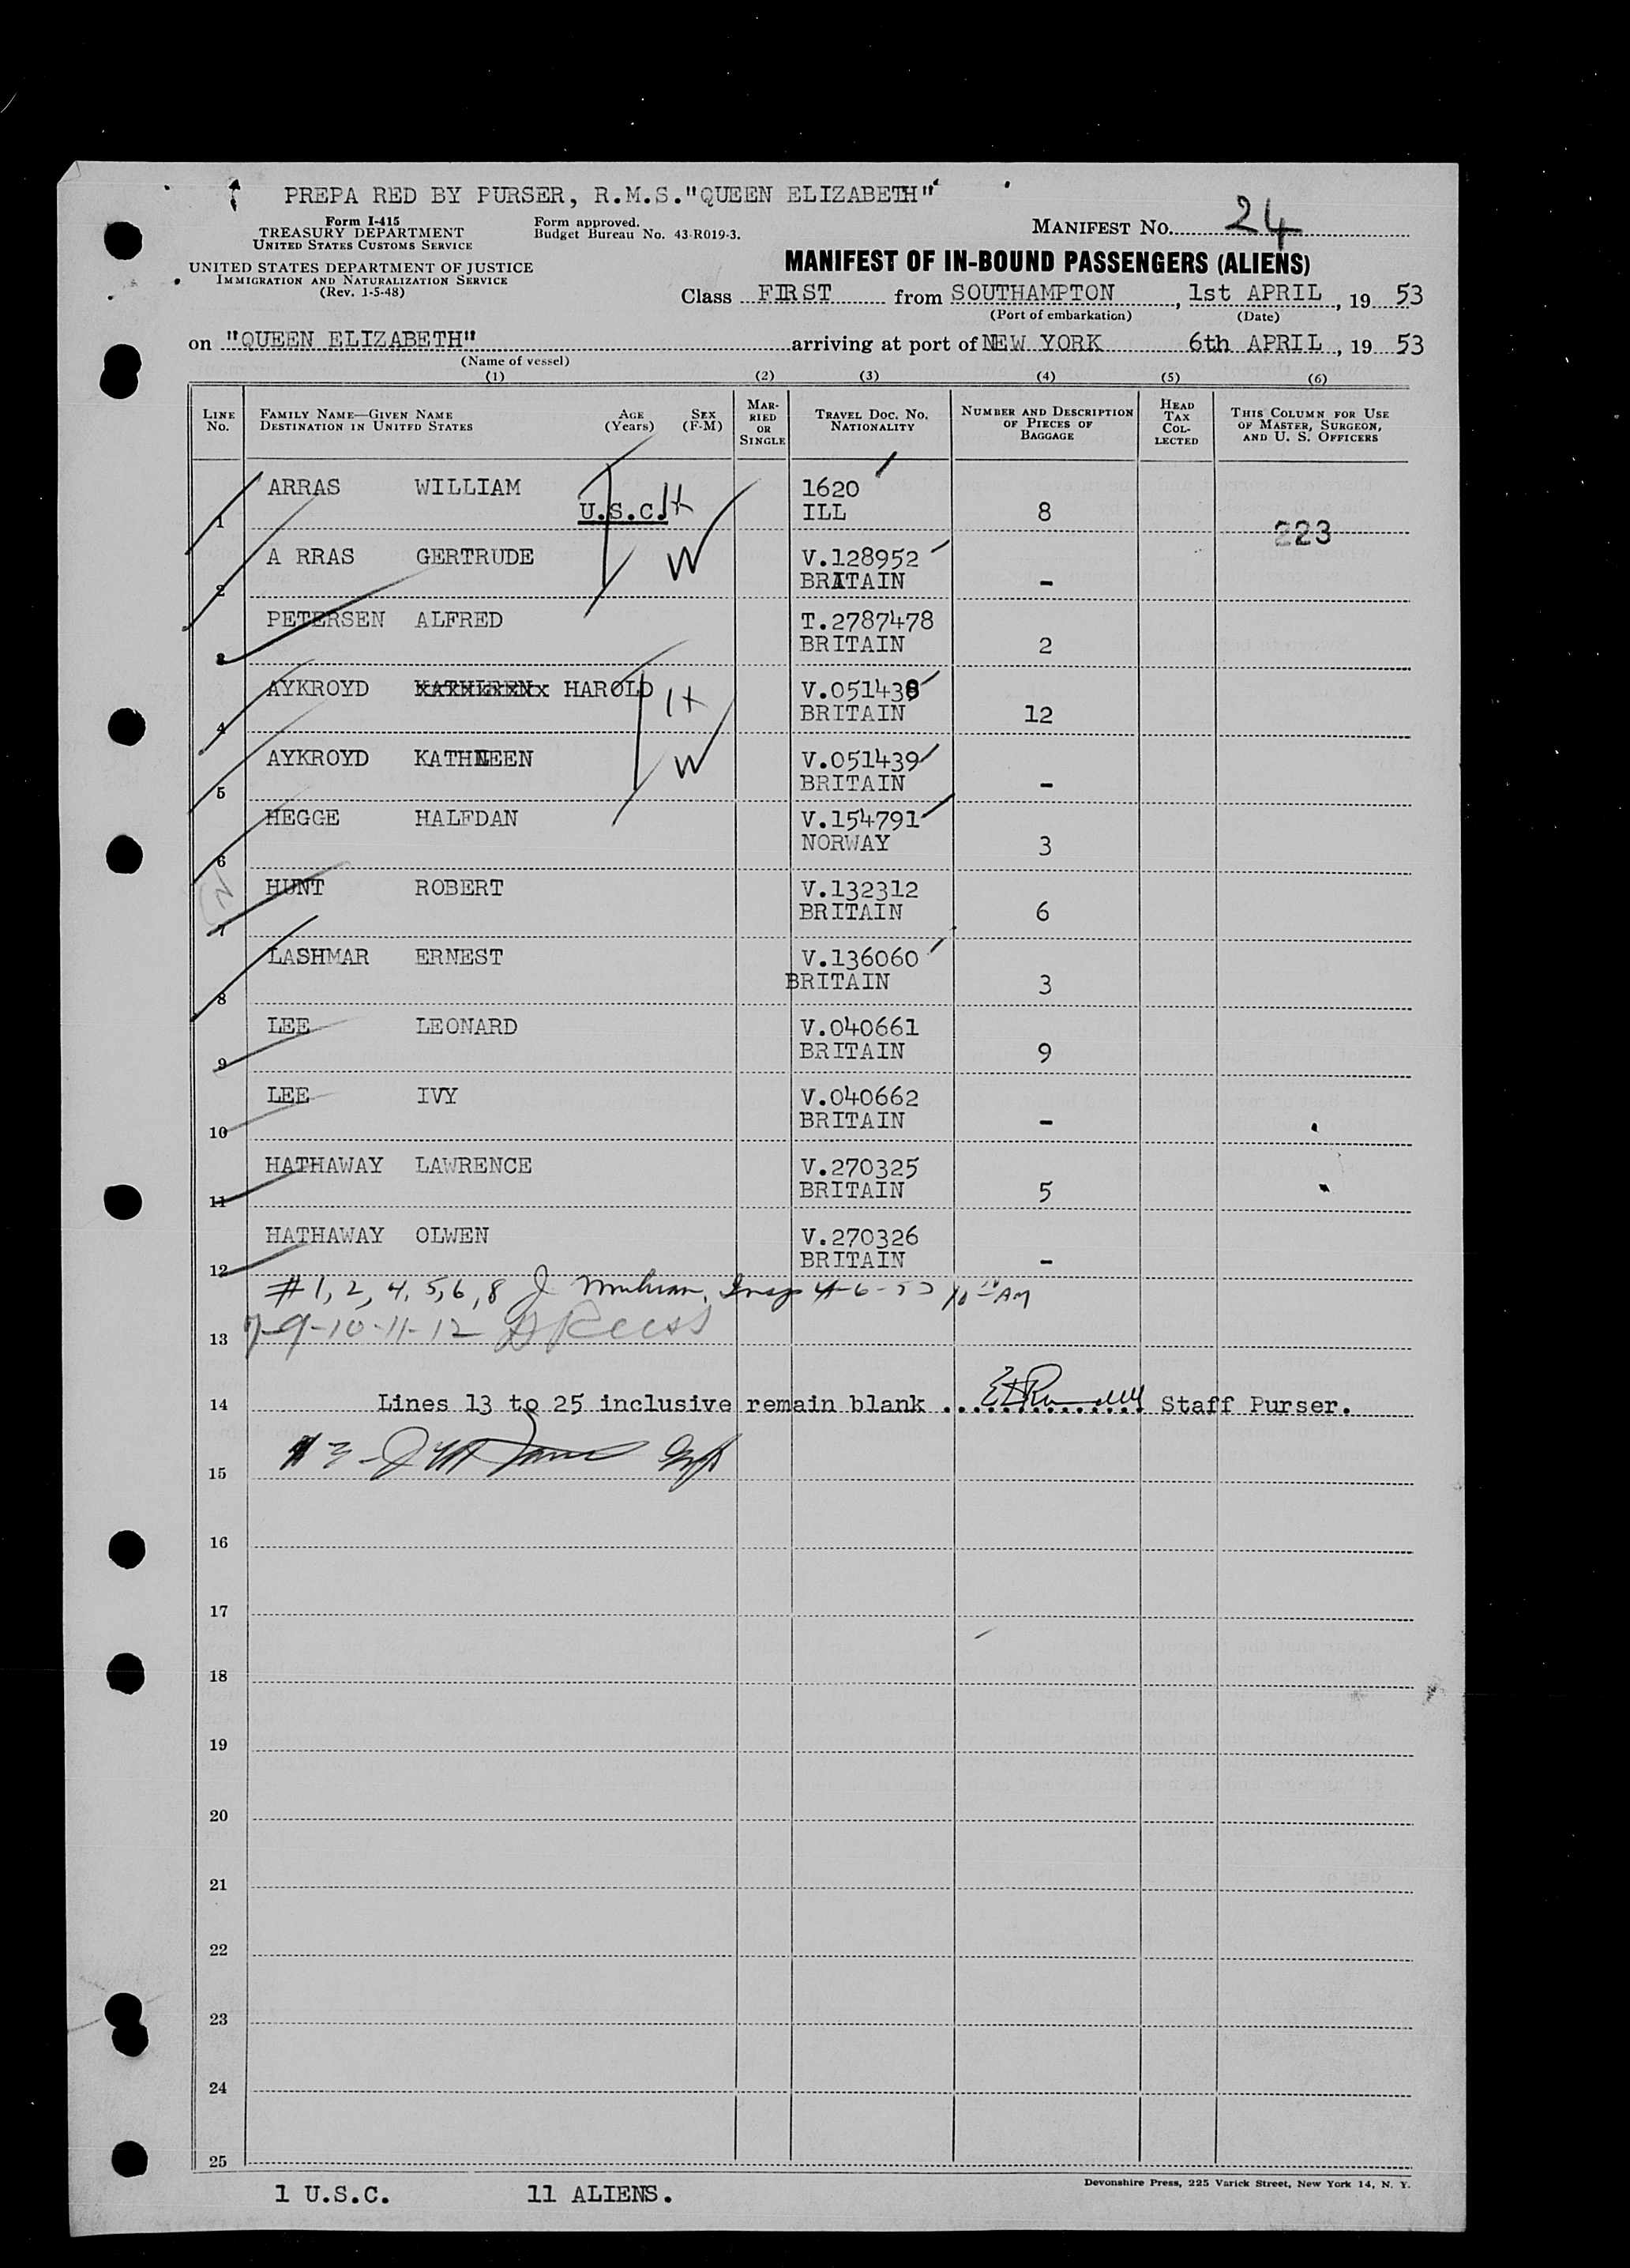 PREPA RED BY PURSER, R.M.S."QUEEN ELIZABETH"
Form I-415
TREASURY DEPARTMENT
UNITED STATES CUSTOMS SERVICE
Form approved.
Budget Bureau No. 43-R019-3.
MANIFEST NO. 24
UNITED STATES DEPARTMENT OF JUSTICE
IMMIGRATION AND NATURALIZATION SERVICE
(Rev. 1-5-48)
MANIFEST OF IN-BOUND PASSENGERS (ALIENS)
Class FIRST from SOUTHAMPTON, 1st APRIL, 19 53
(Port of embarkation) (Date)
on "QUEEN ELIZABETH" arriving at port of NEW YORK 6th APRIL, 19 53
(Name of vessel)
(1) (2) (3) (4) (5) (6)
LINE NO.
FAMILY NAME—GIVEN NAME
DESTINATION IN UNITED STATES
AGE (Years)
SEX (F-M)
MARRIED OR SINGLE
TRAVEL DOC. NO. NATIONALITY
NUMBER AND DESCRIPTION OF PIECES OF BAGGAGE
HEAD TAX COLLECTED
THIS COLUMN FOR USE OF MASTER, SURGEON, AND U. S. OFFICERS
ARRAS WILLIAM 1620
1 U.S.C. H ILL 8
223
A RRAS GERTRUDE W V.128952
2 BRITAIN -
PETERSEN ALFRED T.2787478
3 BRITAIN 2
AYKROYD KATHLEEN HAROLD H V.051438
4 BRITAIN 12
AYKROYD KATHLEEN W V.051439
5 BRITAIN -
HEGGE HALFDAN V.154791
6 NORWAY 3
HUNT ROBERT V.132312
7 BRITAIN 6
LASHMAR ERNEST V.136060
8 BRITAIN 3
LEE LEONARD V.040661
9 BRITAIN 9
LEE IVY V.040662
10 BRITAIN -
HATHAWAY LAWRENCE V.270325
11 BRITAIN 5
HATHAWAY OLWEN V.270326
12 BRITAIN -
#1, 2, 4, 5, 6, 8 J Insp 4-6-53 10 AM
7-9-10-11-12
13
14 Lines 13 to 25 inclusive remain blank Staff Purser.
# 3 -
15
16
17
18
19
20
21
22
23
24
25
Devonshire Press, 225 Varick Street, New York 14, N. Y.
1 U.S.C. 11 ALIENS.